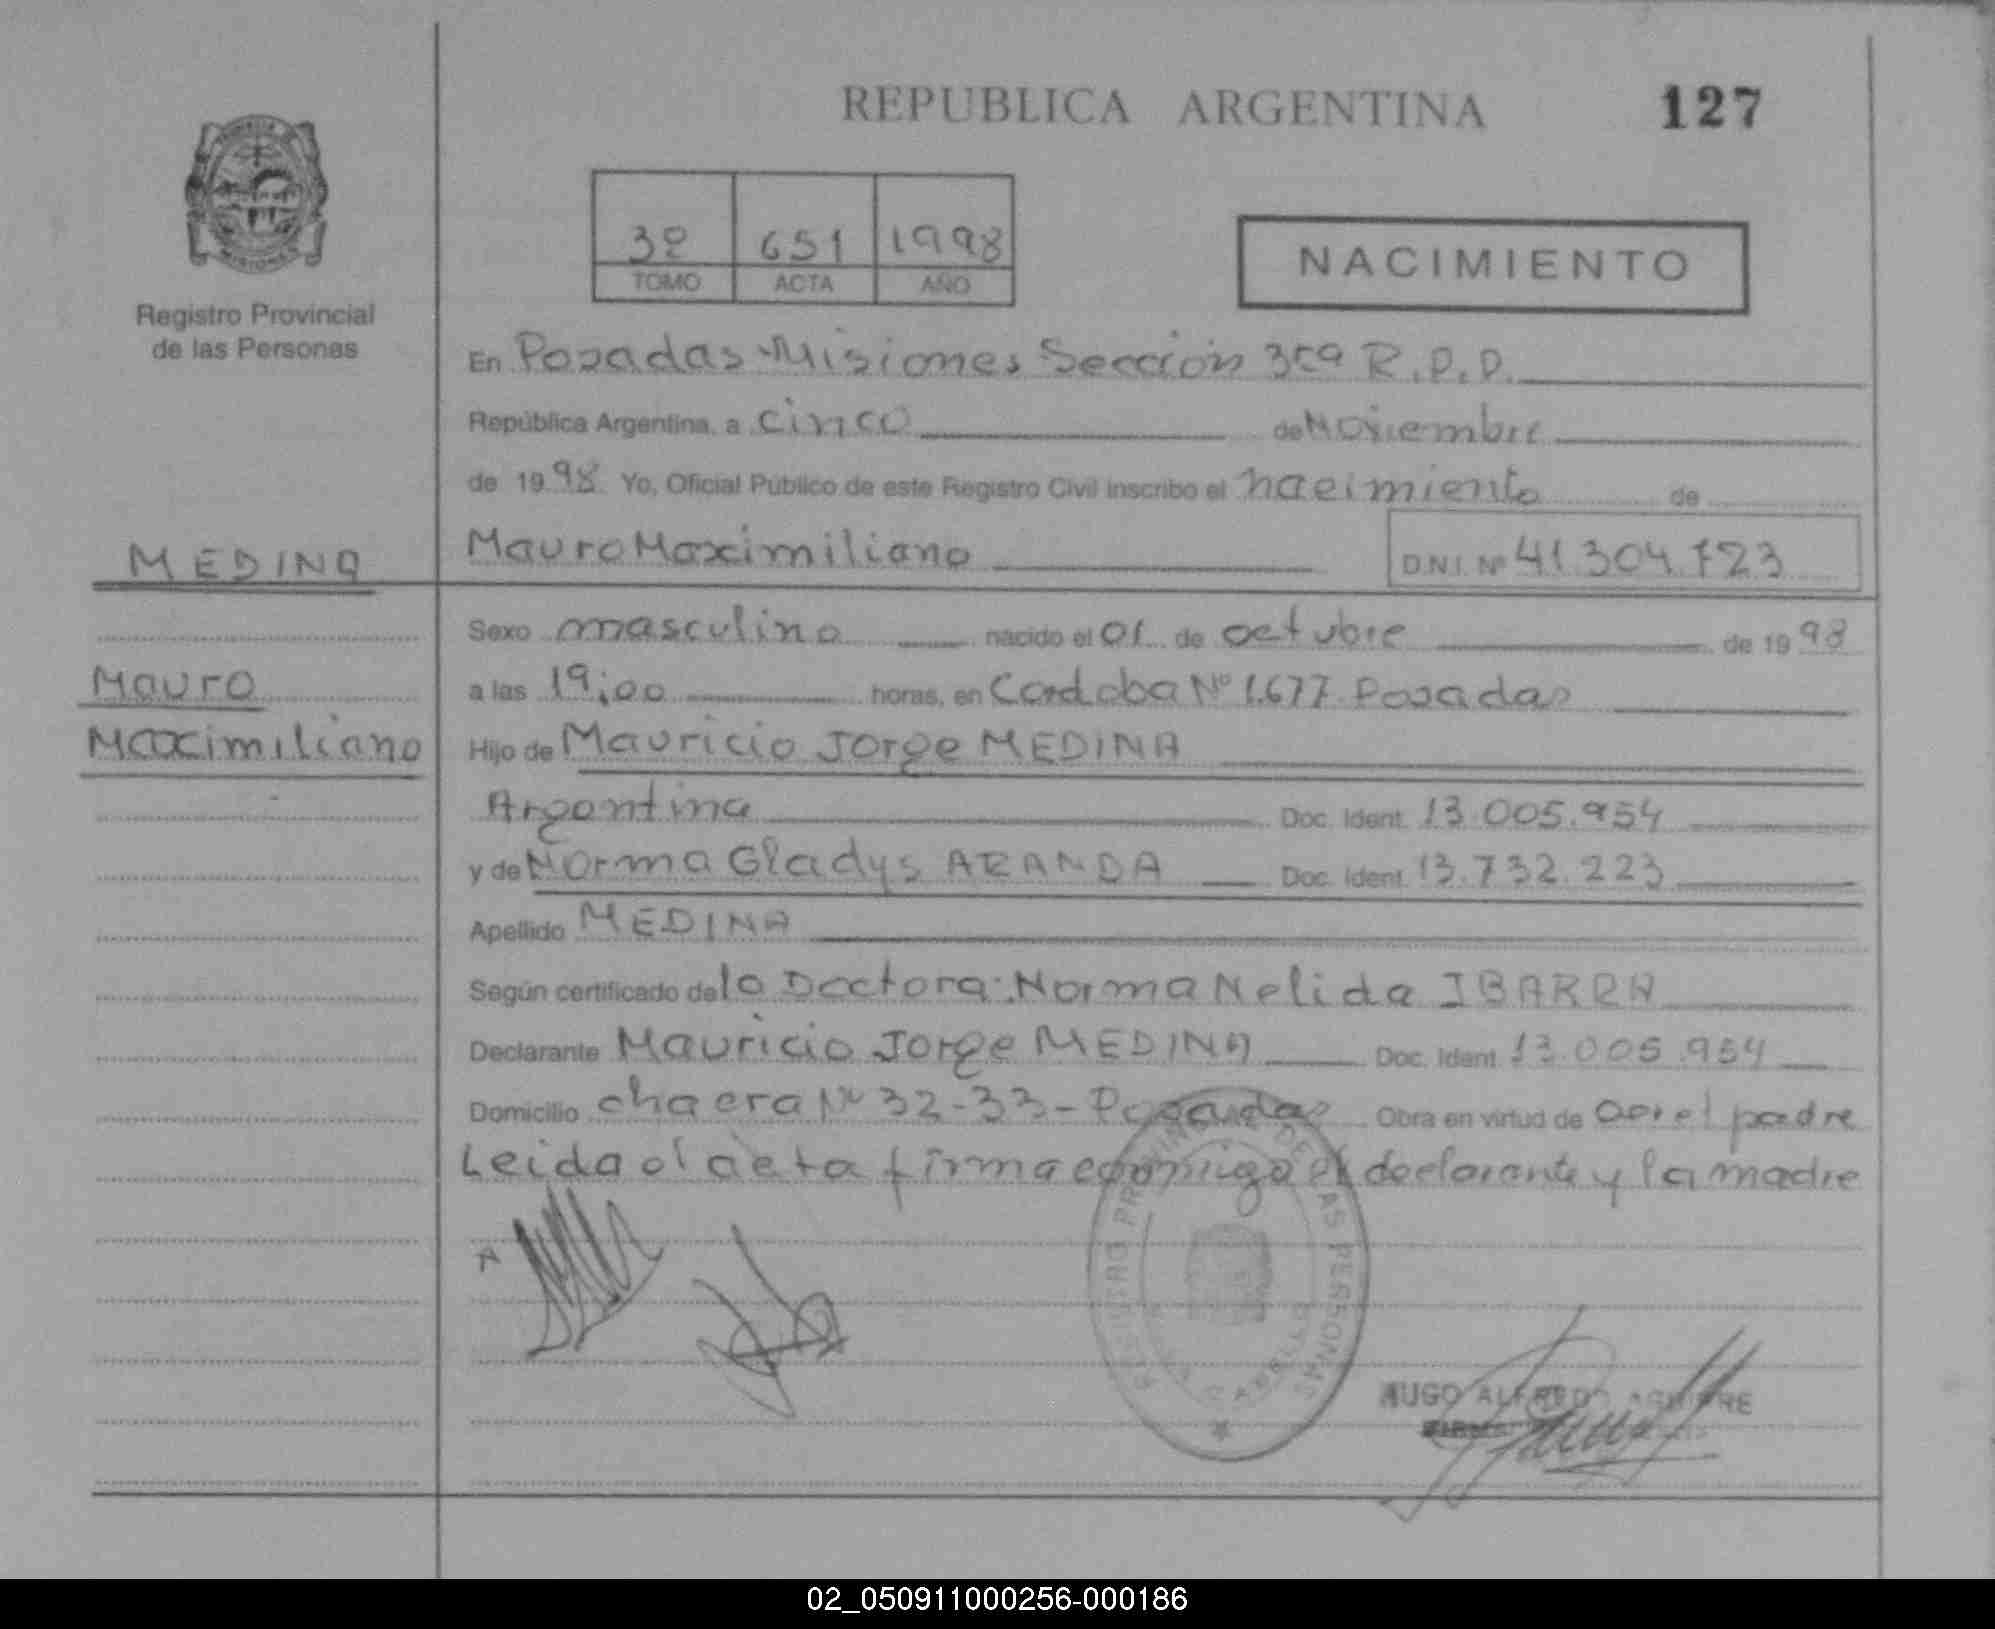 REPUBLICA ARGENTINA 127
3º 651 1998
TOMO ACTA AÑO
NACIMIENTO
Registro Provincial
de las Personas
En Posadas-Misiones Sección 3ra R.P.P.
República Argentina, a cinco de Noviembre
de 1998 Yo, Oficial Público de este Registro Civil inscribo el nacimiento de
MEDINA
Mauro Maximiliano D.N.I. Nº 41.304.723
Sexo masculino nacido el 01 de octubre de 1998
Mauro
a las 19:00 horas, en Cordoba Nº 1.677 Posadas
Maximiliano
Hijo de Mauricio Jorge MEDINA
Argentina Doc. Ident. 13.005.954
y de Norma Gladys ARANDA Doc. Ident. 13.732.223
Apellido MEDINA
Según certificado de la Doctora: Norma Nelida IBARRA
Declarante Mauricio Jorge MEDINA Doc. Ident. 13.005.954
Domicilio chacra Nº 32-33- Posadas Obra en virtud de ser el padre
Leida el acta firma conmigo el declarante y la madre
REGISTRO PROVINCIAL DE LAS PERSONAS
HUGO ALFREDO AGUIRRE
02_050911000256-000186